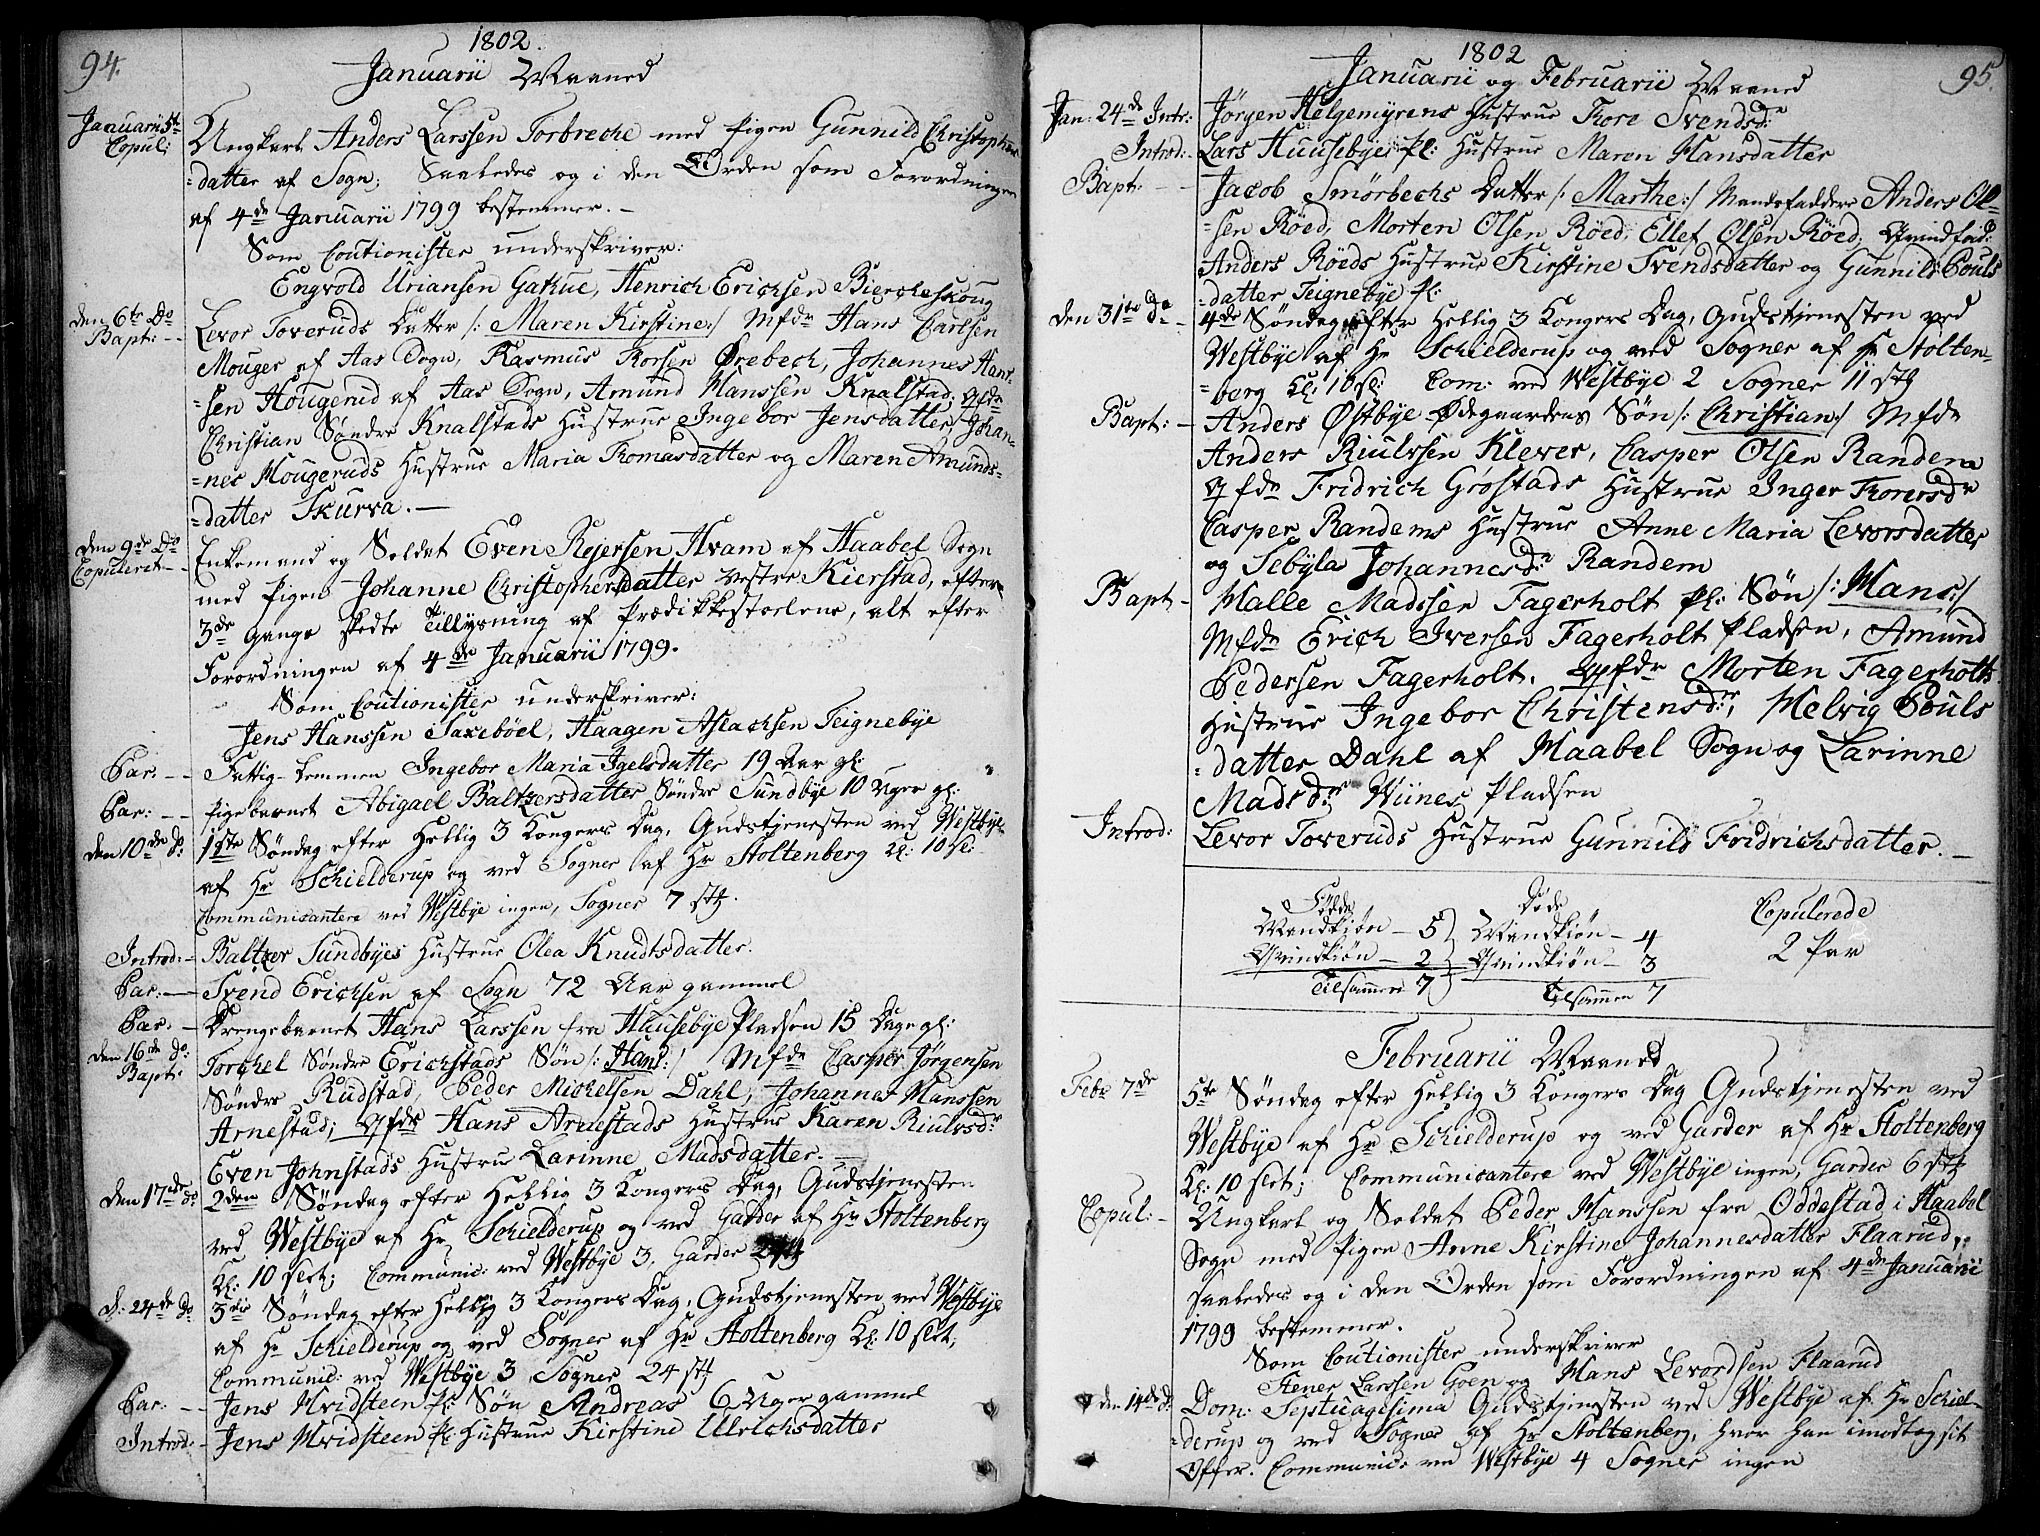 94.
1802.
Januarii Maaned
Januarii 5te Copul:
Ungkarl Anders Larssen Torbreche med Pigen Gunnild Christopher
=datter af Sogn; Saaledes og i den Orden som Forordningen
af 4de Januarii 1799 bestemmer. —
Som Coutionister underskriver:
Engvold Uriansen Gakue, Henrich Erichsen Biercheskoug
den 6te Do Bapt: -
Levor Toveruds Datter /: Maren Kirstine :/ Mfdr Hans Carlsen
Mouger af Aas Sogn, Rasmus Thorsen Ørebech, Johannes Hans-
=sen Hougerud af Aas Sogn, Amund Hanssen Knalstad; qfdr
Christian Søndre Knalstads Hustrue Ingebor Jensdatter, Johan-
=nes Hougeruds Hustrue Maria Thomasdatter og Maren Amunds-
=datter Skurva. —
den 9de Do Copuleret -
Enkemand og Soldat Even Rejersen Hvam af Haabel Sogn
med Pigen Johanne Christophersdatter vestre Kierstad, efter
3de Gange skedte Tillysning af Prædikkestoelene, alt efter
Forordningen af 4de Januarii 1799.
Som Coutionister underskriver:
Jens Hanssen Saxebøel, Haagen Aslachsen Teignebye
Par: -
Fattig-Lemmen Ingebor Maria Igelsdatter 19 Aar gl:
Par: -
Pigebarnet Abigael Baltzersdatter Søndre Sundbye 10 Uger gl:
den 10de do:
1ste Søndag efter Hellig 3 Kongers Dag, Gudstjenesten ved Westbye
af Hr Schielderup og ved Sogner af Hr Stoltenberg Kl: 10 sl:
Communicantere ved Westbye ingen, Sogner 7 stk.
Introd: -
Baltzer Sundbyes Hustrue Olea Knudtsdatter.
Par: -
Svend Erichsen af Sogn 72 Aar gammel
Par: -
Drengebarnet Hans Larssen fra Huusebye Pladsen 15 Dage gl:
den 16de do: Bapt:
Torchel Søndre Erichstads Søn /: Hans :/ Mfdr Casper Jørgensen
Søndre Rudstad, Peder Michelsen Dahl, Johannes Hanssen
Arnestad; qfdr Hans Arnestads Hustrue Karen Riulvsdr
Even Johnstads Hustrue Larinne Madsdatter. —
den 17de do
2den Søndag efter Hellig 3 Kongers Dag, Gudstjenesten
ved Westbye af Hr Schielderup og ved Garder af Hr Stoltenberg
Kl: 10 slet; Communic: ved Westbye 3, Garder
d: 24de do
3die Søndag efter Hellig 3 Kongers Dag, Gudstjenesten ved Westbye
af Hr Schielderup og ved Sogner af Hr Stoltenberg Kl: 10 slet;
Communic: ved Westbye 3, Sogner 24 stk
Par: -
Jens Hvidsteen Pl: Søn Andreas 6 Uger gammel
Introd: -
Jens Hvidsteen Pl: Hustrue Kirstine Ulrichsdatter
95.
1802
Januarii og Februarii Maaned
Jan: 24de Intr:
Jørgen Helgemyrens Hustrue Thore Svendsdr
Introd: -
Lars Huusebye Pl: Hustrue Maren Hansdatter
Bapt: -
Jacob Smørbechs Datter /: Marthe :/ Mandsfaddere Anders Ol-
=sen Røed, Morten Olsen Røed, Ellef Olsen Røed, Qvindfad:
Anders Røeds Hustrue Kirstine Svendsdatter og Gunnild Pouls
=datter Teignebye Pl:
den 31te do -
4de Søndag efter Hellig 3 Kongers Dag, Gudstjenesten ved
Westbye af Hr Schielderup og ved Sogner af Hr Stolten-
=berg Kl: 10 sl: Com: ved Westbye 2 Sogner 11 stk
Bapt: -
Anders Østbye Ødegaardens Søn /: Christian :/ Mfdr
Anders Riulvssen Klever, Casper Olsen Randem
qfdr Fridrich Grøstads Hustrue Inger Thoresdr
Casper Randems Hustrue Anne Maria Levorsdatter
og Sebÿla Johannesdr Randem
Bapt -
Halle Madssen Fagerholt Pl: Søn /: Hans :/
Mfdr Erich Iversen Fagerholt Pladsen, Amund
Pedersen Fagerholt. qfdr Morten Fagerholts
Hustrue Ingebor Christensdr, Helvig Pouls
=datter Dahl af Haabel Sogn og Larinne
Madsdr Wiines Pladsen
Introd:
Levor Toveruds Hustrue Gunnild Fridrichsdatter. —
Fødde
Mandkiøn — 5
Qvindkiøn — 2
Tilsammen 7
Døde
Mandkiøn — 4
Qvindkiøn — 3
Tilsammen 7
Copulerede
2 Par
Februarii Maaned
Febr 7de
5te Søndag efter Hellig 3 Kongers Dag Gudstjenesten ved
Westbye af Hr Schielderup og ved Garder af Hr Stoltenberg
Kl: 10 slet; Communicantere ved Westbye ingen, Garder 6 stk
Copul: -
Ungkarl og Soldat Peder Hanssen fra Oddestad i Haabel
Sogn med Pigen Anne Kirstine Johannesdatter Flaarud,
saaledes og i den Orden som Forordningen af 4de Januarii
1799 bestemmer.
Som Coutionister underskriver
Stener Larssen Goen og Hans Levordsen Flaarud
den 14de do
Dom: Septuagesima Gudstjenesten ved Westbye af Hr Schiel-
=derup og ved Sogner af Hr Stoltenberg, hvor han imodtog sit
Offer. Communic: ved Westbye 4 Sogner ingen